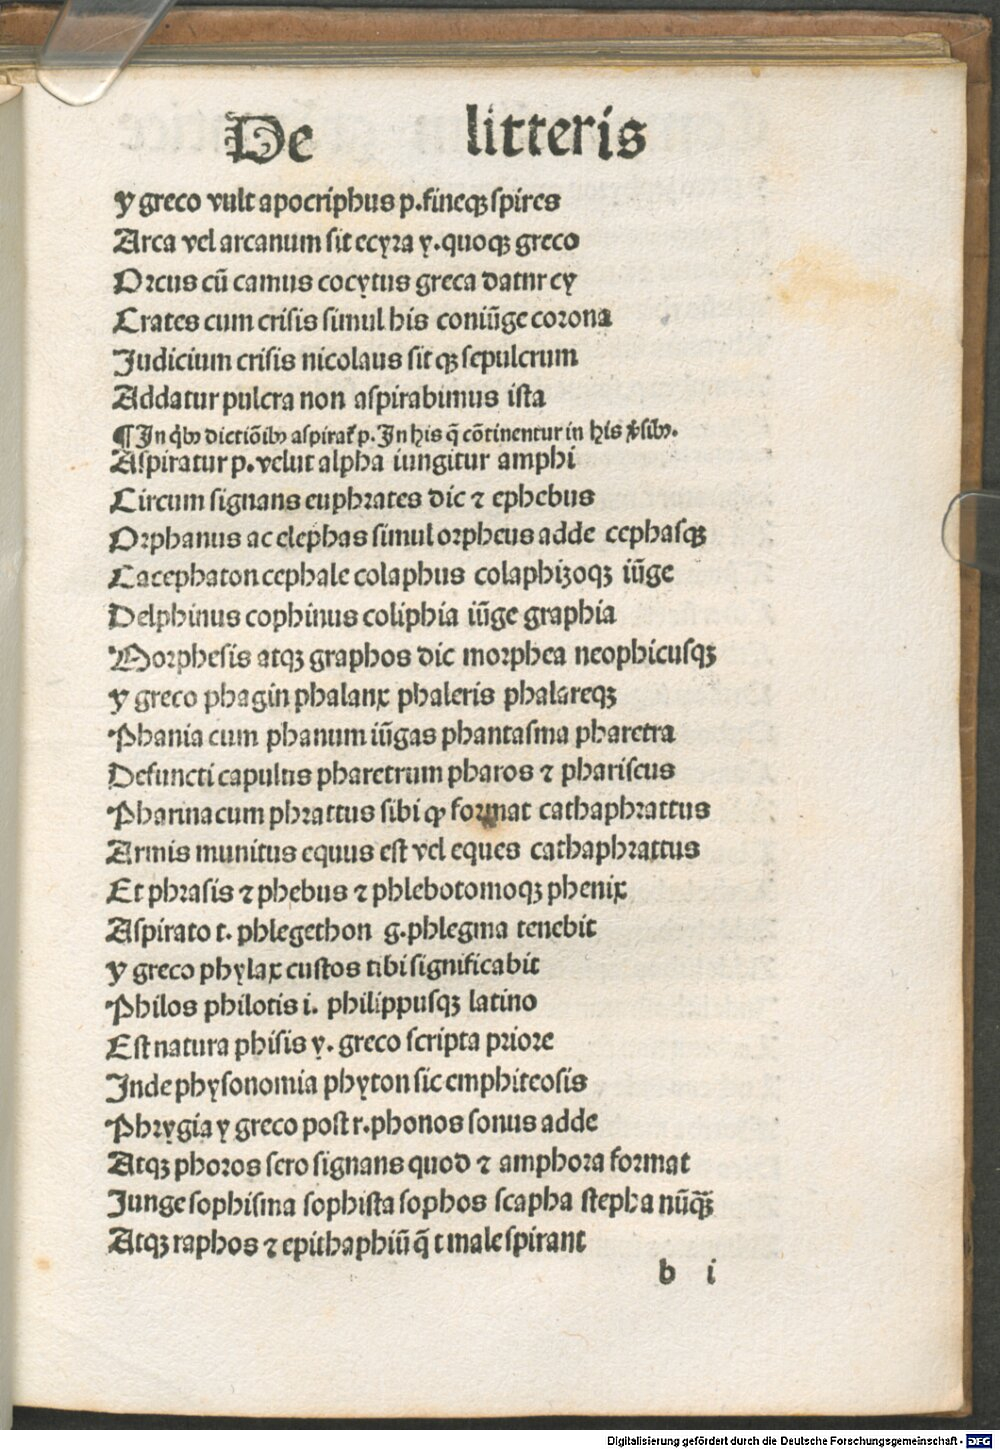 De litteris
y greco vult apocriphus p.fineqꝫ spires
Arca vel arcanum sit ecyra y.quoqꝫ greco
Orcus cū camus cocytus greca datnr cy
Crates cum crisis simul his coniūge corona
Judicium crisis nicolaus sit qꝫ sepulcrum
Addatur pulcra non aspirabimus ista
¶ In qͥbꝰ dictiōibꝰ aspirat̄ p. In his q̄ cōtinentur in his v̄sibꝰ.
Aspiratur p.velut alpha iungitur amphi
Circum signans euphrates dic ⁊ ephebus
Orphanus ac elephas simul orpheus adde cephasqꝫ
Cacephaton cephale colaphus colaphizoqꝫ iūge
Delphinus cophinus coliphia iūge graphia
Morphesis atqꝫ graphos dic morphea neophicusqꝫ
y greco phagin phalanx phaleris phalareqꝫ
Phania cum phanum iūgas phantasma pharetra
Defuncti capulus pharetrum pharos ⁊ phariscus
Pharmacum phrattus sibi ꝙ format cathaphrattus
Armis munitus equus est vel eques cathaphrattus
Et phrasis ⁊ phebus ⁊ phlebotomoqꝫ phenix
Aspirato t. phlegethon g.phlegma tenebit
y greco phylax custos tibi significabit
Philos philotis i. philippusqꝫ latino
Est natura phisis y. greco scripta priore
Inde physonomia phyton sic emphiteosis
Phrygia y greco post r.phonos sonus adde
Atqꝫ phoros fero signans quod ⁊ amphora format
Junge sophisma sophista sophos scapha stepha nūqꝫ̄
Atqꝫ raphos ⁊ epithaphiū q̄ t male spirant
b i
Digitalisierung gefördert durch die Deutsche Forschungsgemeinschaft - DFG